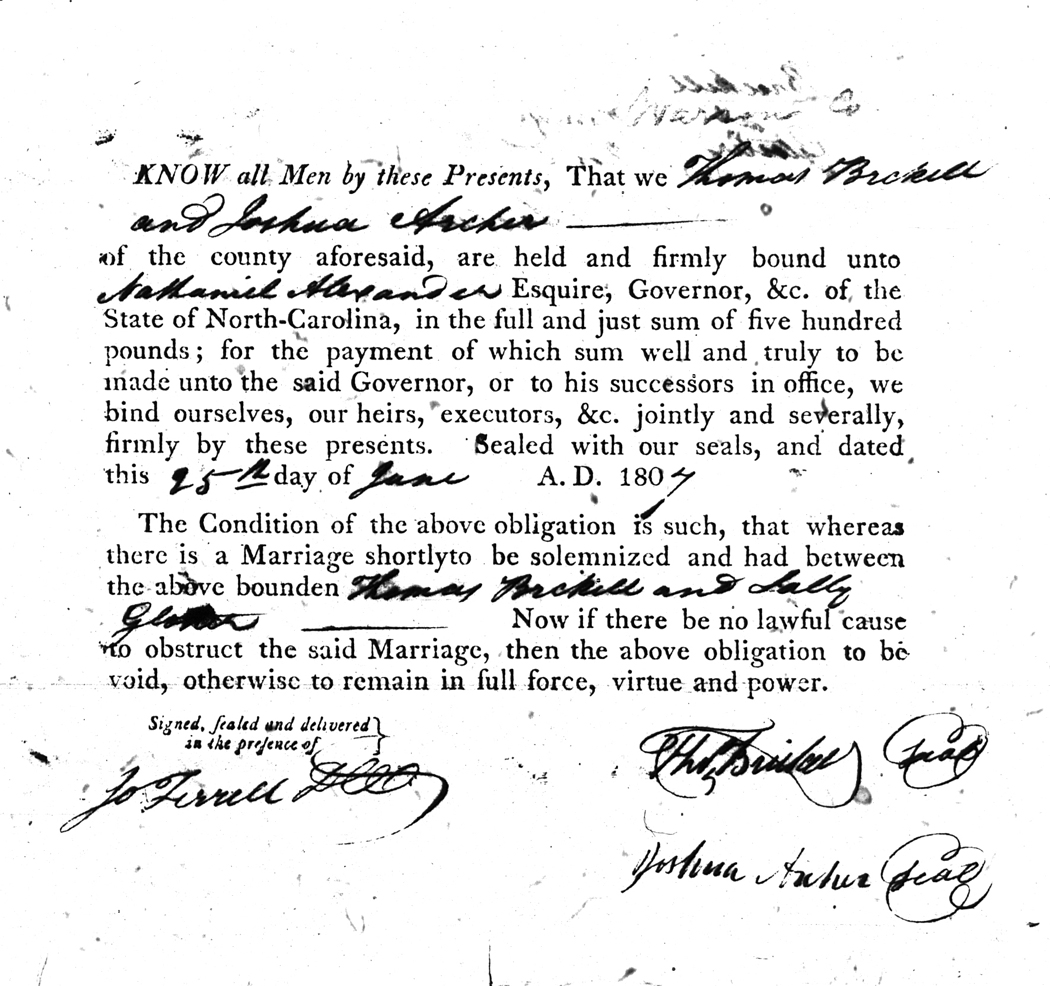 KNOW all Men by these Presents, That we Thomas Brckell
and Joshua Archer
of the county aforesaid, are held and firmly bound unto
Nathaniel Alexander Esquire, Governor, &c. of the
State of North-Carolina, in the full and just sum of five hundred
pounds; for the payment of which sum well and truly to be
made unto the said Governor, or to his successors in office, we
bind ourselves, our heirs, executors, &c. jointly and severally,
firmly by these presents. Sealed with our seals, and dated
this 25th day of June A. D. 1807
The Condition of the above obligation is such, that whereas
there is a Marriage shortlyto be solemnized and had between
the above bounden Thomas Brckell and Sally
Now if there be no lawful cause
to obstruct the said Marriage, then the above obligation to be
void, otherwise to remain in full force, virtue and power.
Signed, ſealed and delivered
in the preſence of
Jo Terrell DCC
Tho, Brickell Seal
Joshua Archer Seal